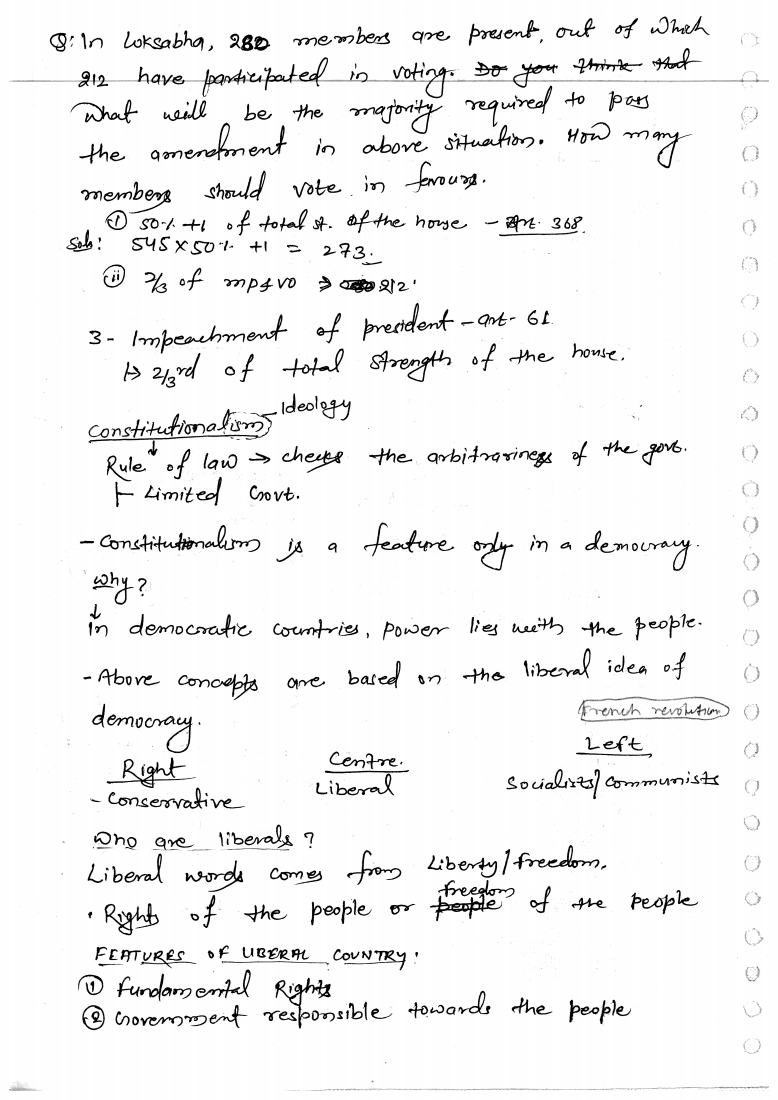 Q: In Loksabha, 280 members are present, out of which
212 have participated in voting. Do you think that
What will be the majority required to pass
the amendment in above situation. How many
members should vote in favours.
① 50% +1 of total st. of the house - Art. 368.
Soln: 545 × 50% +1 = 273.
② 2/3 of mp&vo ⇒ 212.
3 - Impeachment of president - art- 61
↳ 2/3rd of total strength of the house.
Constitutionalism - Ideology
↓
Rule of law → checks the arbitrariness of the govt.
⊢ Limited Govt.
- Constitutionalism is a feature only in a democracy.
Why?
↓
In democratic countries, power lies with the people.
- Above concepts are based on the liberal idea of
democracy.
French revolution
Right Centre. Left
- Conservative Liberal Socialists/Communists
Who are liberals?
Liberal words comes from Liberty/freedom.
• Rights of the people or people freedom of the people
FEATURES OF LIBERAL COUNTRY.
① Fundamental Rights
② Government responsible towards the people